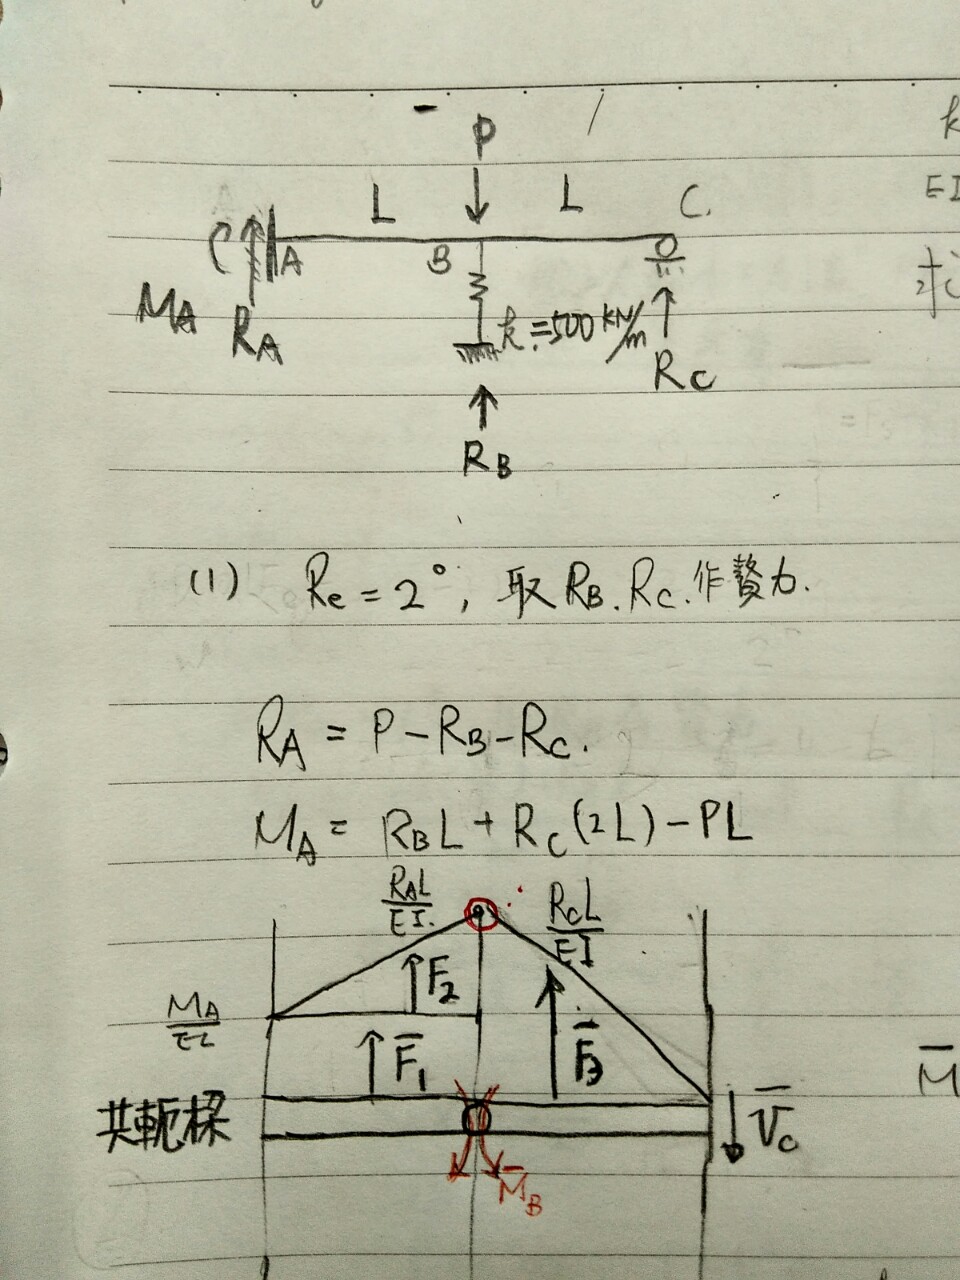 P
L L C.
A B
MA RA k=500 kN/m RC
RB
k
EI
求
(1) Re = 2°, 取 RB. RC. 作贅力.
RA = P - RB - RC.
MA = RBL + RC(2L) - PL
RAL/EI. RCL/EI
MA/EI F̄1 F2 F̄3 M̄
共軛樑 V̄C
M̄B